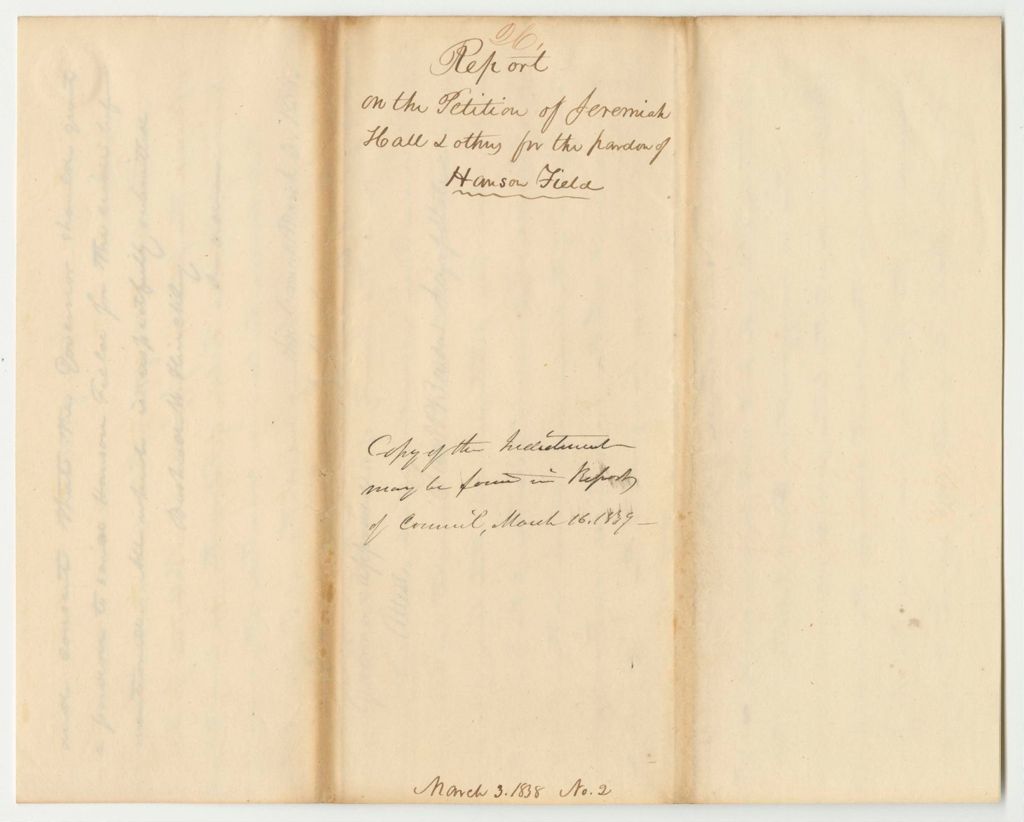 26.
Report
on the Petition of Jeremiah
Hall & others for the pardon of
Hanson Field
Copy of the Indictment
may be found in Reports
of Council, March 16. 1839 —
March 3. 1838 No. 2